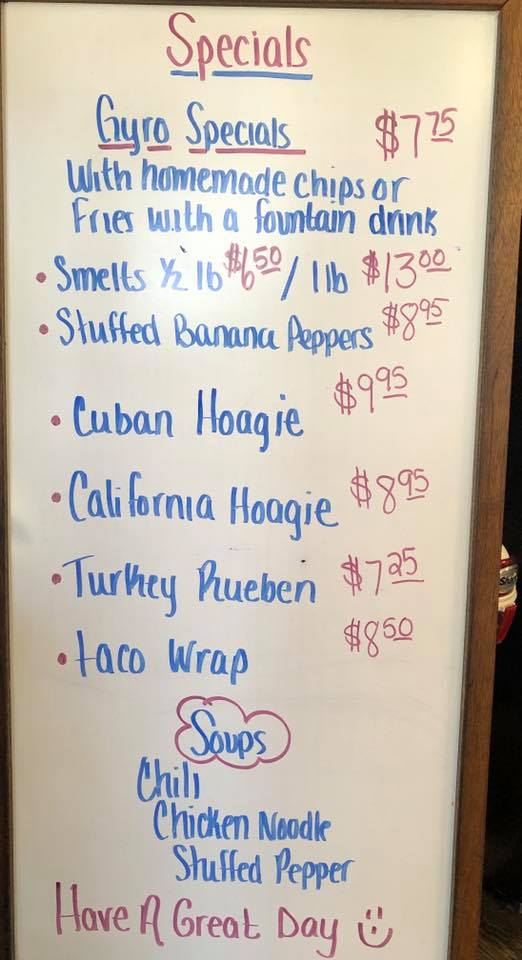 Specials
Gyro Specials $7.75
With homemade chips or
Fries with a fountain drink
• Smelts ½ lb $6.50 / 1 lb $13.00
• Stuffed Banana Peppers $8.95
• Cuban Hoagie $9.95
• California Hoagie $8.95
• Turkey Rueben $7.25
• taco Wrap $8.50
Soups
Chili
Chicken Noodle
Stuffed Pepper
Have A Great Day